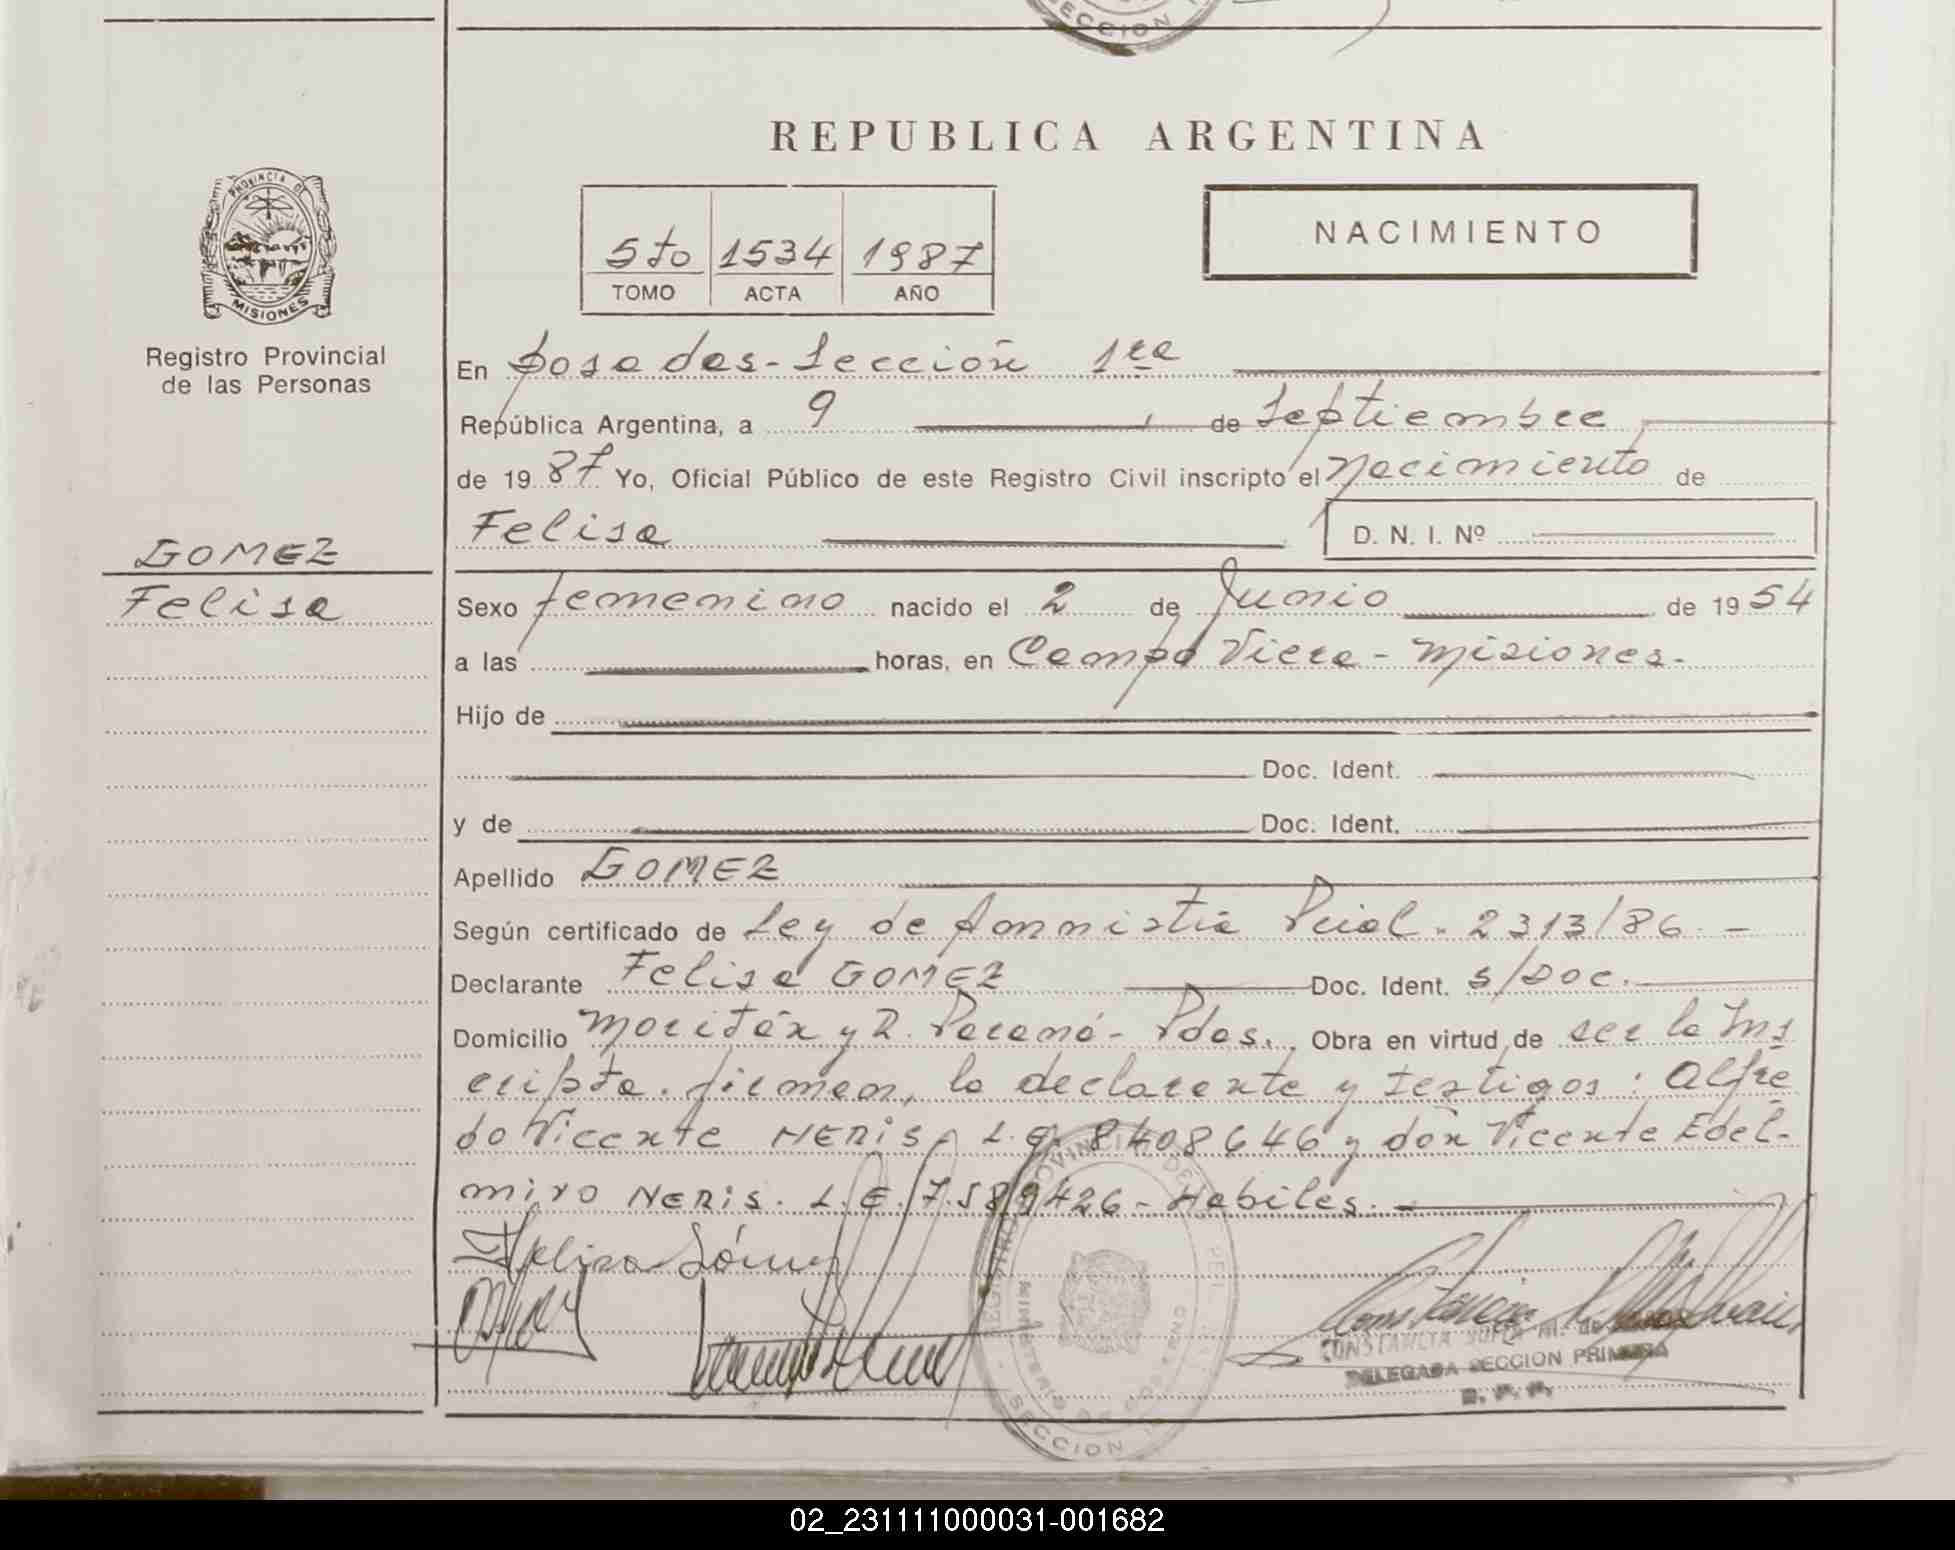 SECCION
REPUBLICA ARGENTINA
PROVINCIA DE
MISIONES
Registro Provincial
de las Personas
5to 1534 1987
TOMO ACTA AÑO
NACIMIENTO
En Posadas-Sección 1ra
República Argentina, a 9 de Septiembre
de 1987 Yo, Oficial Público de este Registro Civil inscripto el Nacimiento de
Felisa D. N. I. Nº
GOMEZ
Felisa
Sexo femenino nacido el 2 de Junio de 1954
a las horas, en Campo Viera - Misiones.-
Hijo de
Doc. Ident.
y de Doc. Ident.
Apellido GOMEZ
Según certificado de Ley de Amnistía Pcial. 2313/86. -
Declarante Felisa GOMEZ Doc. Ident. s/Doc.
Domicilio y R. Paraná - Pdas. Obra en virtud de ser la Ins
cripta. firman, la declarante y testigos: Alfre
do Vicente NERIS, 8408646 y don Vicente Edel-
miro NERIS. L.E. 7.589426 - Habiles.
Felisa Gómez
CONSTANCIA
DELEGADA SECCION PRIMERA
R. P. P.
SECCION
02_231111000031-001682